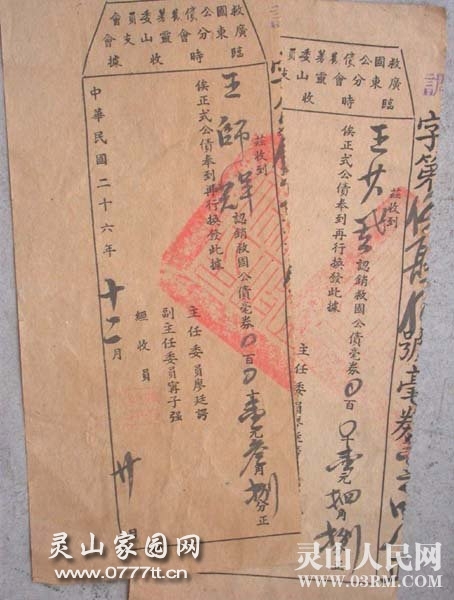 廣東分會靈山支會
臨時收據
茲收到
王
認銷救國公債毫券0百0十壹元四角捌
俟正式公債奉到再行換發此據
主任委員
字第
號毫券
廣東分會靈山支會
臨時收據
茲收到
王師祥
認銷救國公債毫券0百0壹元叁角捌分正
俟正式公債奉到再行換發此據
主任委員廖廷諤
副主任委員甯子強
經收員
中華民國二十六年十二月廿日
灵山家园网
www.0777tt.cn
灵山人民网
www.03RM.COM